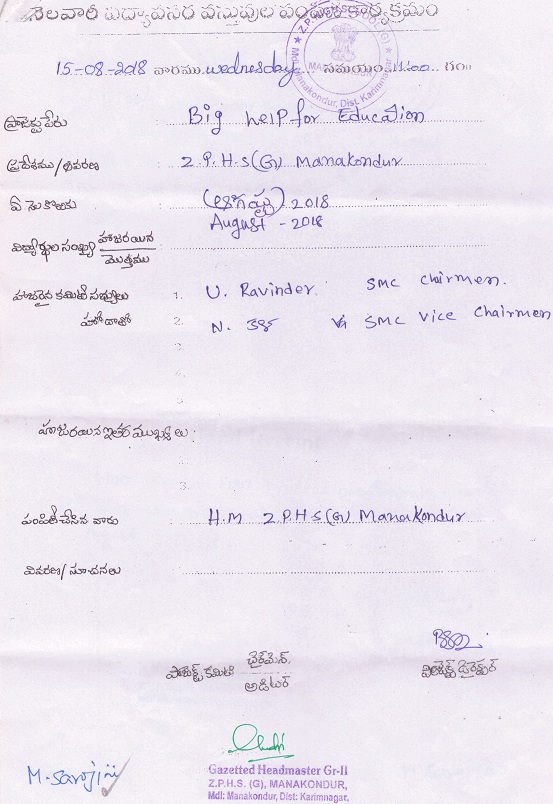 నెలవారీ విద్యావసర వస్తువుల పంపిణీ కార్యక్రమం
15-08-2018 వారము. wednesday సమయం. 11.00 గం॥
ప్రాజెక్టు పేరు Big help for Education
ప్రదేశము / వివరణ Z.P.H.S(G) Manakondur
ఏ నెల కొఱకు (ఆగష్టు) 2018
August - 2018
విద్యార్థుల సంఖ్య హాజరయిన
మొత్తము
హాజరైన కమిటీ సభ్యులు 1. U. Ravinder SMC chairmen.
హోదాతో 2. N. SMC Vice Chairmen
3
హాజరయిన ఇతర ముఖ్యులు
3.
పంపిణీ చేసిన వారు H.M Z.P.H.S(G) Manakondur
వివరణ / సూచనలు
ప్రాజెక్ట్ కమిటీ ఛైర్మెన్.
ఆడిటర్
ప్రాజెక్ట్ డైరెక్టర్
M. Sarojini
Gazetted Headmaster Gr-II
Z.P.H.S. (G), MANAKONDUR,
Mdl: Manakondur, Dist: Karimnagar.
Mdl. Manakondur, Dist. Karimnagar